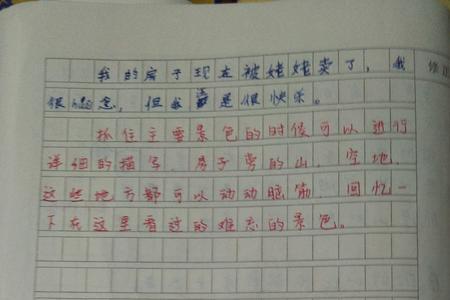 我的房子现在被姥姥卖了，我
很思念，但我还是很快乐。
抓住主要景色的时候可以进行
详细的描写，房子旁的山，空地，
这些地方都可以动动脑筋，回忆一
下在这里看过的难忘的景色。